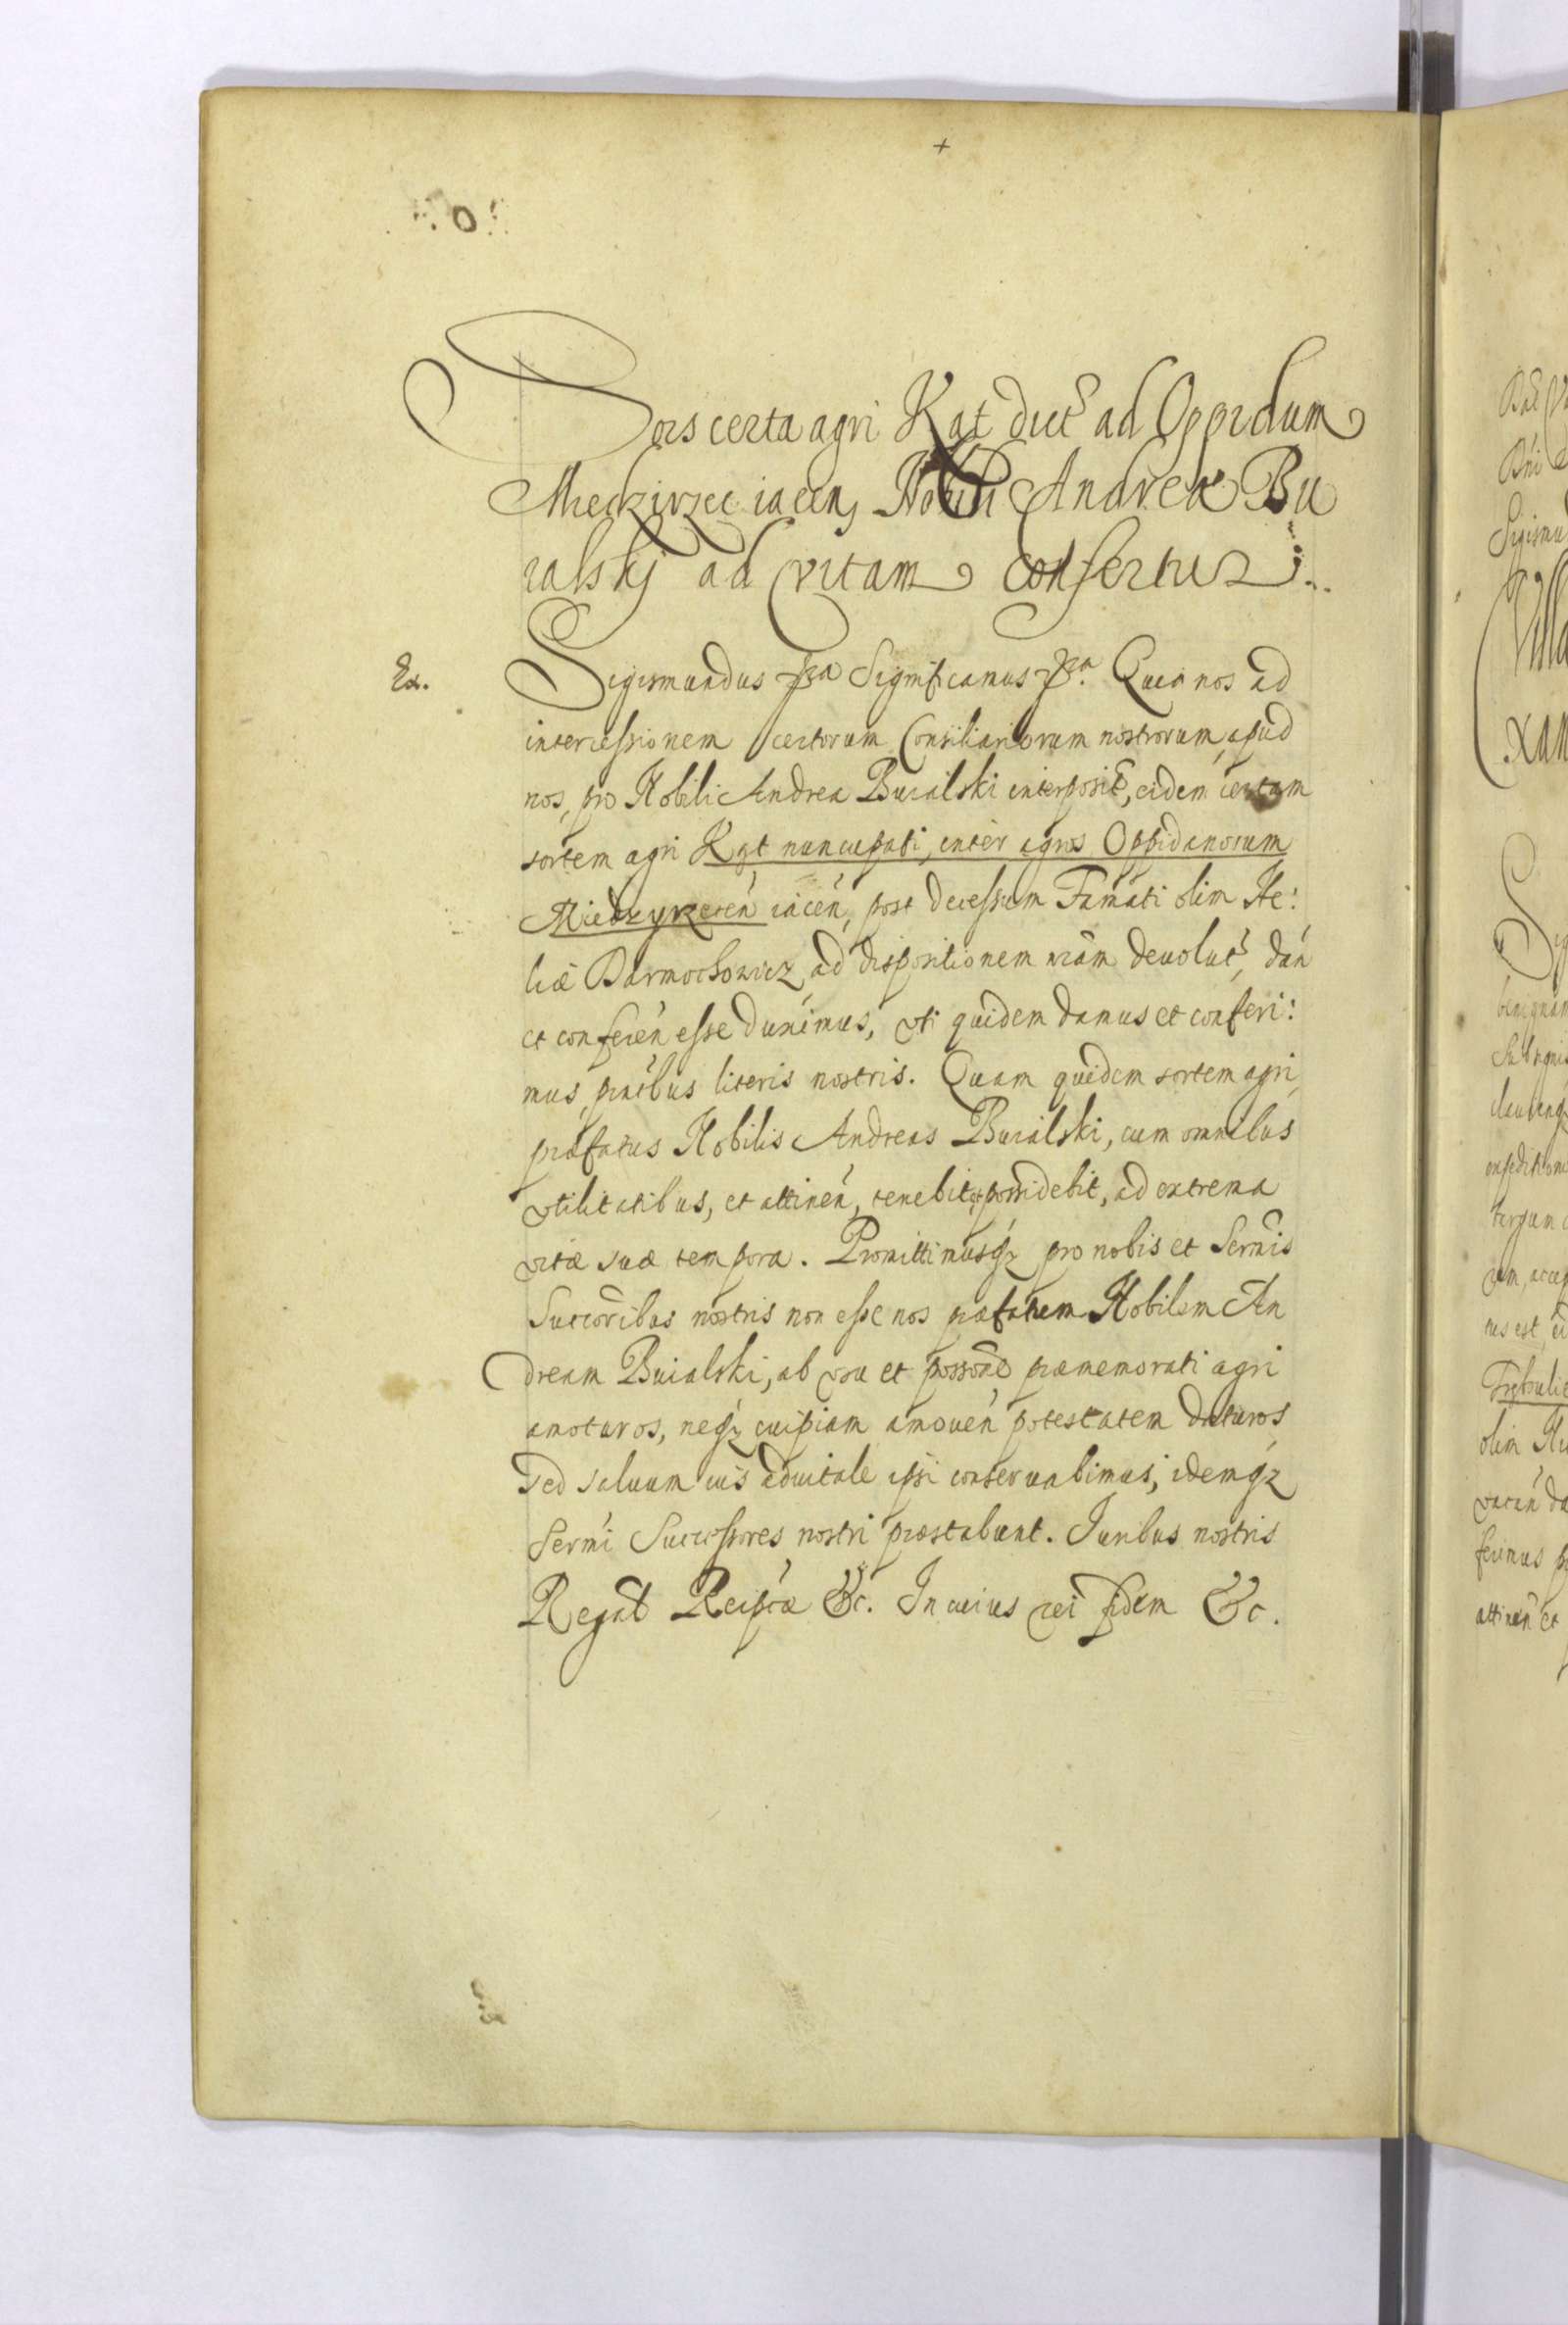 Sors certa agri Kąt dict̃ ad Oppidum
Miedzirzec iacen, Nobili Andreæ Bu
ialskj ad vitam confertur.
Ex. Sigismundus pꝛa Significamus pꝛa. Quia nos ad
intercessionem certorum Consiliariorum nostrorum, apud
nos, pro Nobili Andrea Buialski interposit̃, eidem certam
sortem agri Kąt nuncupati, inter agros Oppidanorum
Miedzyrzecen̄ iacen̄, post decessum Famati olim He:
liæ Darmochowicz, ad dispositionem nr̃am deuolut̃, dan̄
et conferen̄ esse duximus, vti quidem damus et conferi:
mus, pñtibus literis nostris. Quam quidem sortem agri
præfatus Nobilis Andreas Buialski, cum omnibus
vtilitatibus, et attinen̄, tenebit, et possidebit, ad extrema
vitæ suæ tempora. Promittimusqꝫ pro nobis et Serm̃is
Succoribus nostris non esse nos præfatum Nobilem An
dream Buialski, ab vsu et possoñe præmemorati agri
amoturos, neqꝫ cuipiam amouen̄ potestatem daturos
sed saluum ius aduitale ipsi conseruabimus, idemqꝫ
Serm̃i Successores nostri præstabunt. Iuribus nostris
Regal̃ Reipcæ &c. In cuius rei fidem &c.